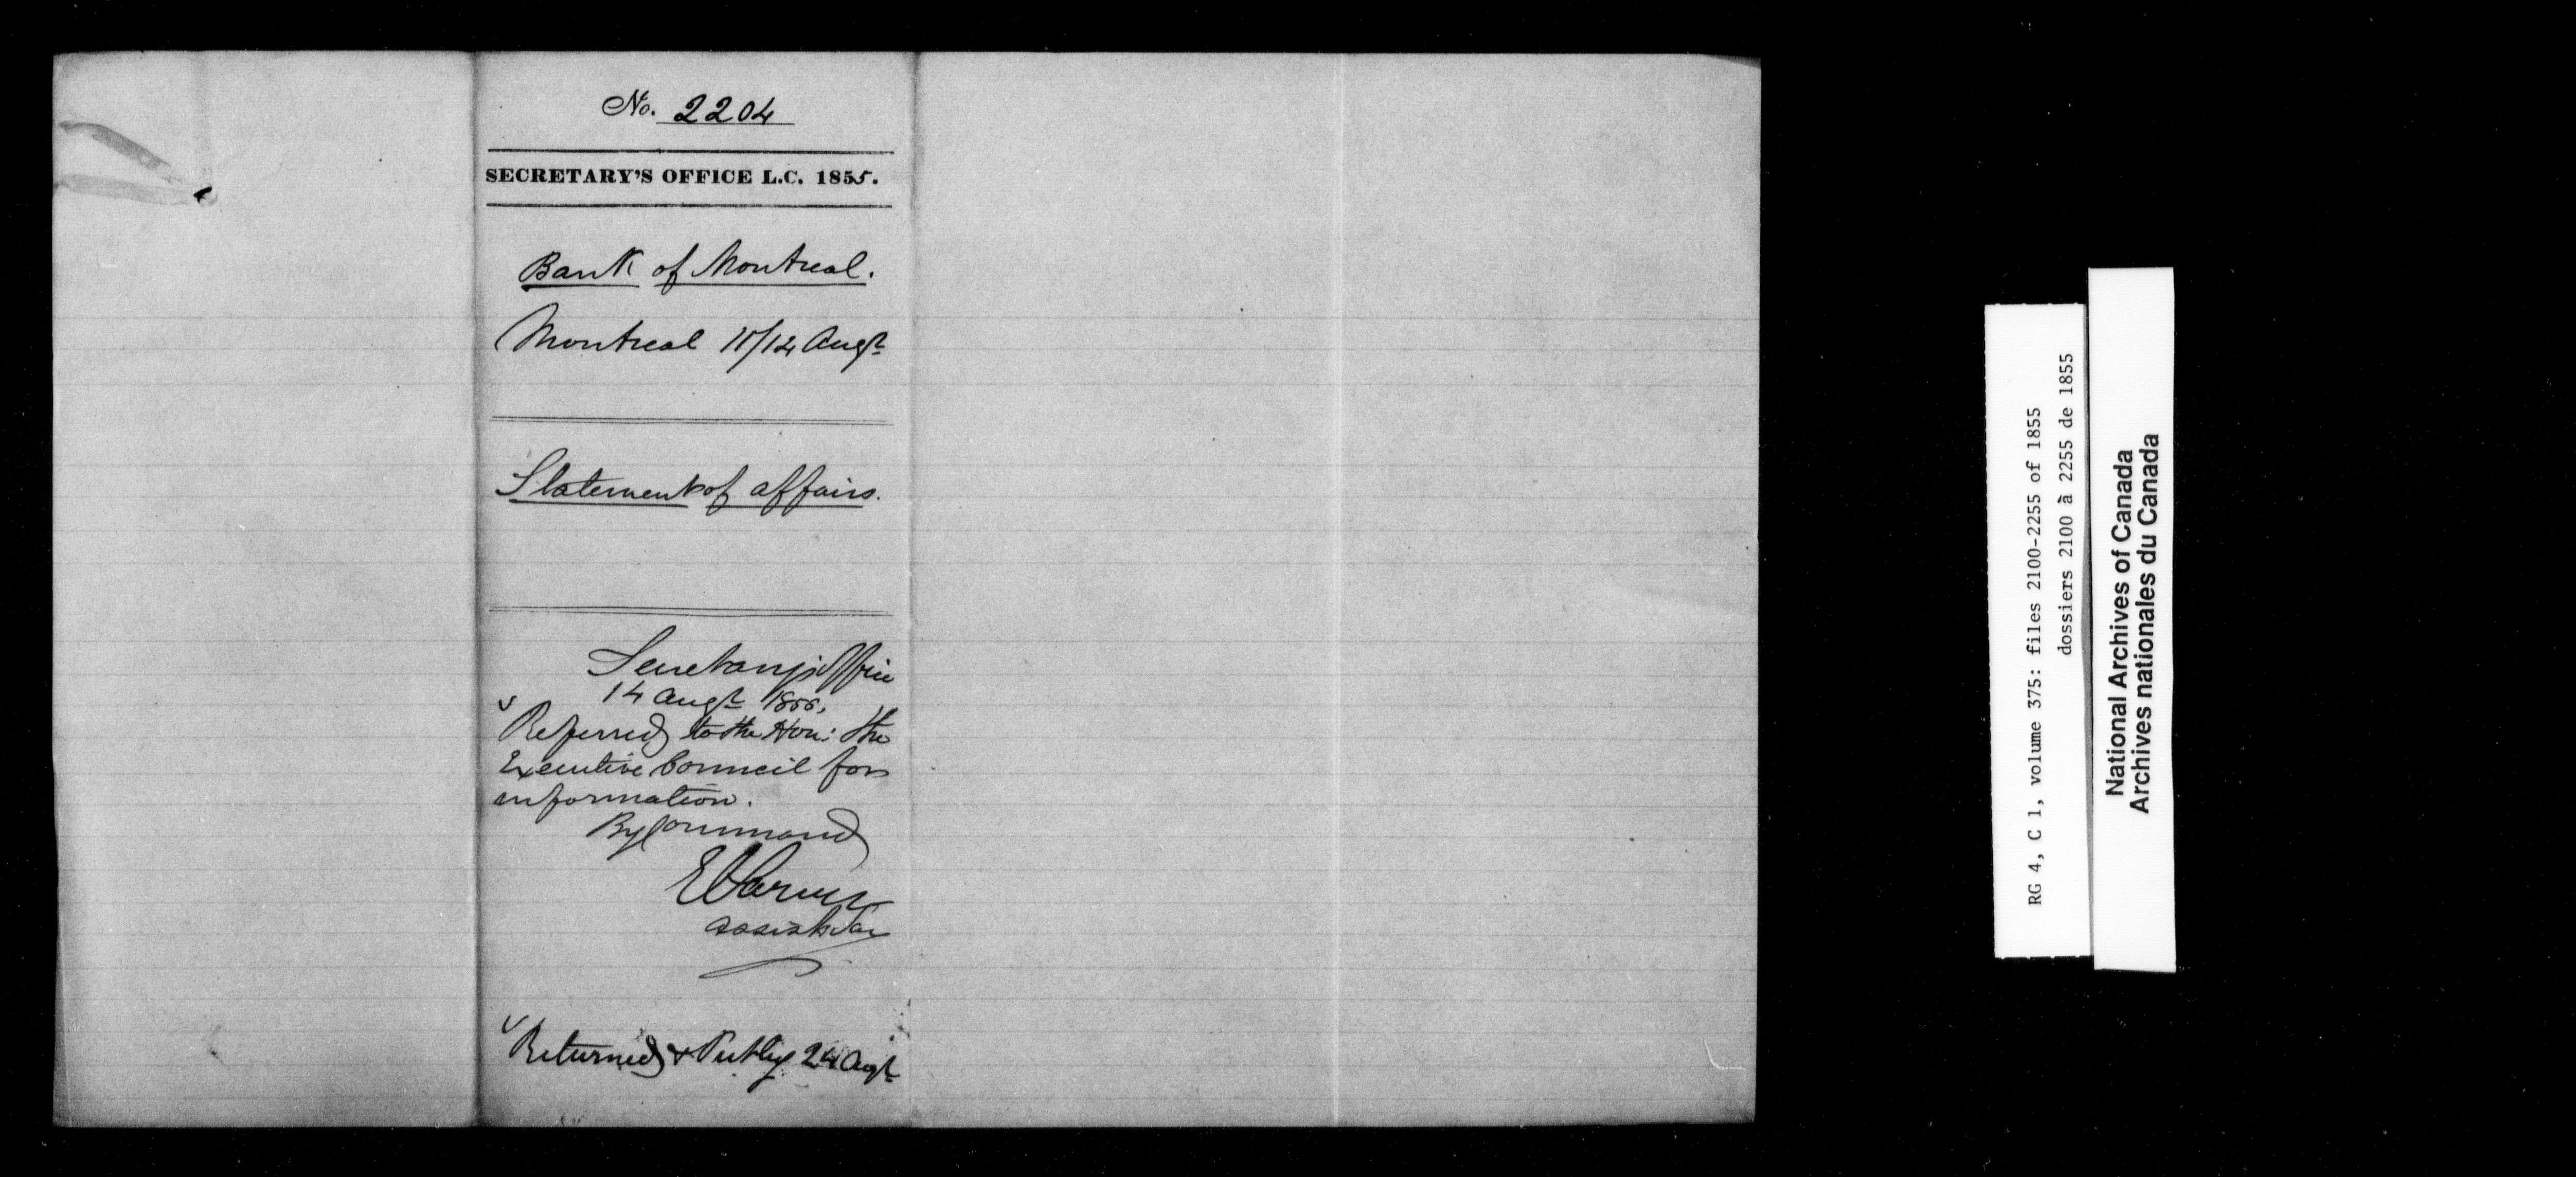 No. 2204
SECRETARY'S OFFICE L.C. 1855.
Bank of Montreal.
Montreal 11/14 Augt
Statement of affairs.
Secretary's Office
14 Augt 1855.
Referred to the Hon: the
Executive Council for
information.
By Command
Assist Sec
Returned & 24 Agt
RG 4, C 1, volume 375: files 2100-2255 of 1855
dossiers 2100 à 2255 de 1855
National Archives of Canada
Archives nationales du Canada